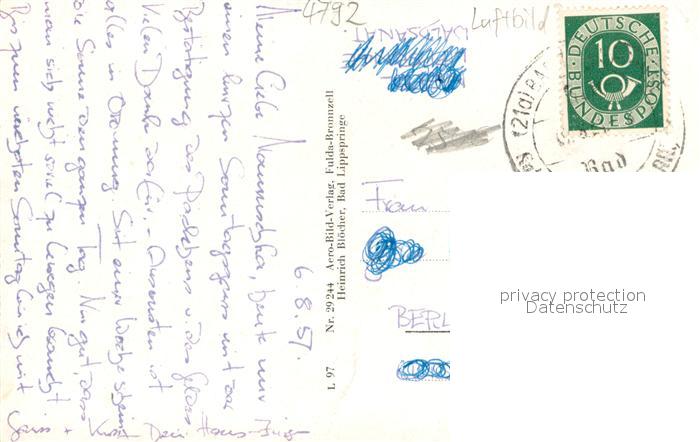 4792
Luftbild
WALDSANAT.
DEUTSCHE
10
BUNDESPOST
(21a) BAD
Bad
6.8.57.
Meine liebe Mamuschka, heute nur
einen kurzen Sonntagsgruss mit der
Bestätigung des Päckchens u. des Geldes
Vielen Dank dafür. - Ansonsten ist
alles in Ordnung. Seit einer Woche scheint
die Sonne den ganzen Tag. Nur gut, dass
man sich nicht soviel zu bewegen braucht
Bis zum nächsten Sonntag bin ich mit
Gruss + Kuss Dein Hans-
L 97 Nr. 29 244 Aero-Bild-Verlag, Fulda-Bronnzell
Heinrich Blöcher, Bad Lippspringe
Frau
BERL
privacy protection
Datenschutz